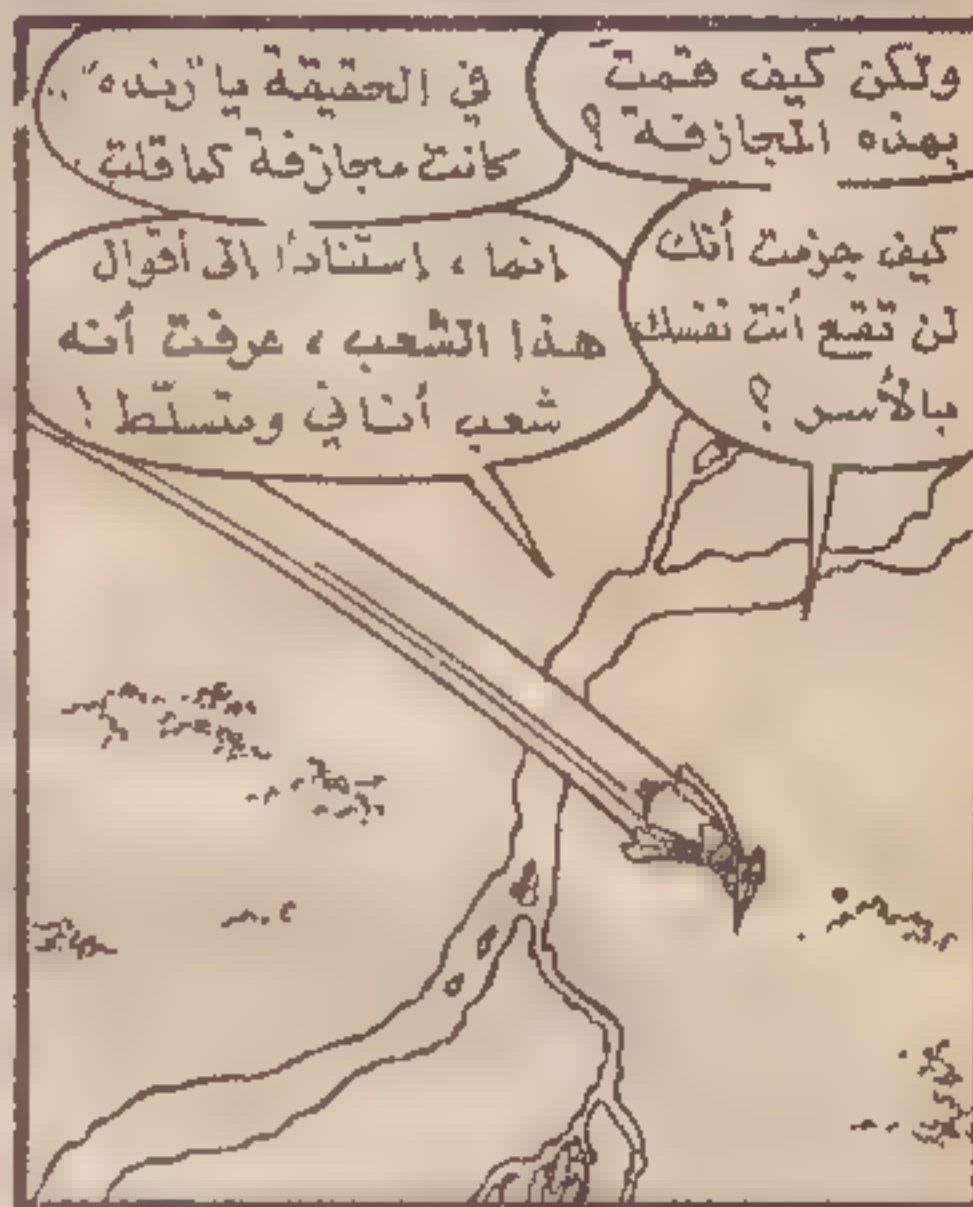 ولكن كيف قمتَ
بهذه المجازفة ؟
كيف جزمت أنك
لن تقع أنت نفسك
بالأسر ؟
في الحقيقة يا "رنده" ..
كانت مجازفة كما قلتِ
إنما ، إستناداً إلى أقوال
هذا الشعب ، عرفت أنه
شعب أناني ومتسلّط !